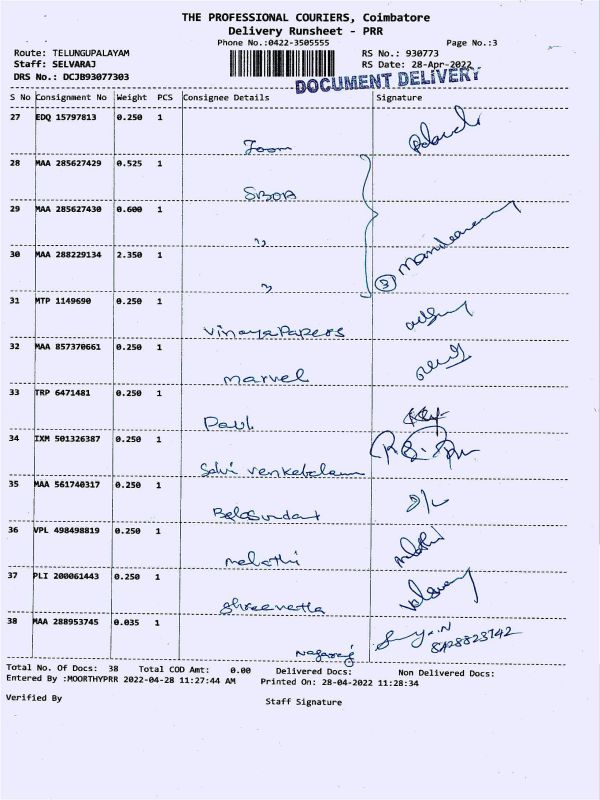 THE PROFESSIONAL COURIERS, Coimbatore
Delivery Runsheet - PRR
Phone No.:0422-3505555
Page No.:3
Route: TELUNGUPALAYAM
RS No.: 930773
Staff: SELVARAJ
RS Date: 28-Apr-2022
DRS No.: DCJB93077303
DOCUMENT DELIVERY
S No Consignment No Weight PCS Consignee Details Signature
27 EDQ 15797813 0.250 1
28 MAA 285627429 0.525 1
29 MAA 285627430 0.600 1
"
30 MAA 288229134 2.350 1
"
3
31 MTP 1149690 0.250 1
Vinaya Papers
32 MAA 857370661 0.250 1
marvel
33 TRP 6471481 0.250 1
Paul
34 IXM 501326387 0.250 1
35 MAA 561740317 0.250 1
36 VPL 498498819 0.250 1
malathi
37 PLI 200061443 0.250 1
38 MAA 288953745 0.035 1
Nagaraj
Total No. Of Docs: 38 Total COD Amt: 0.00 Delivered Docs: Non Delivered Docs:
Entered By :MOORTHYPRR 2022-04-28 11:27:44 AM Printed On: 28-04-2022 11:28:34
Verified By
Staff Signature